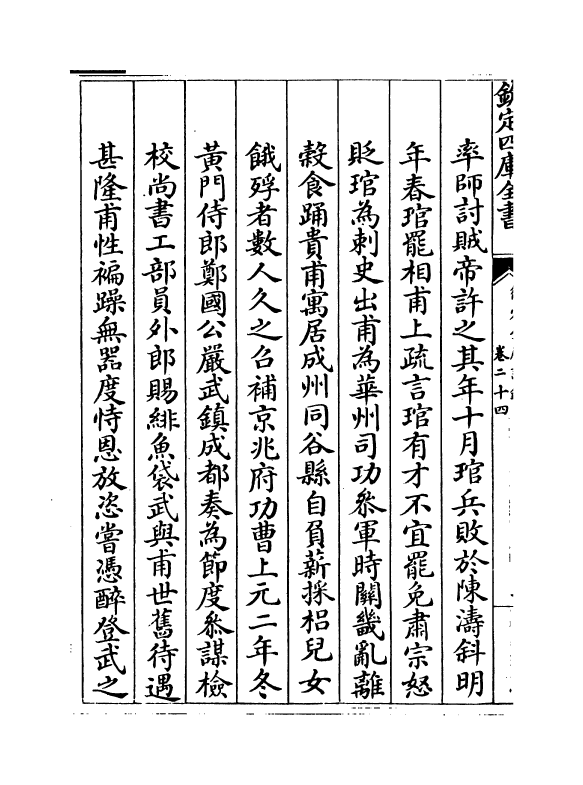 欽定四庫全書
卷二十四
率師討賊帝許之其年十月琯兵敗於陳濤斜明
年春琯罷相甫上疏言琯有才不宜罷免肅宗怒
貶琯為刺史出甫為華州司功參軍時關畿亂離
穀食踊貴甫寓居成州同谷縣自負薪採梠兒女
餓殍者數人久之召補京兆府功曹上元二年冬
黃門侍郎鄭國公嚴武鎮成都奏為節度參謀檢
校尚書工部員外郎賜緋魚袋武與甫世舊待遇
甚隆甫性褊躁無器度恃恩放恣嘗憑醉登武之